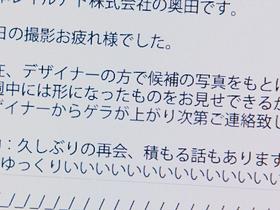 株式会社の奥田です。
日の撮影お疲れ様でした。
、デザイナーの方で候補の写真をもとに
週中には形になったものをお見せできるか
ザイナーからゲラが上がり次第ご連絡致し
：久しぶりの再会、積もる話もあります
ゆっくりいいいいいいいいいいいいいいい
/_/_/_/_/_/_/_/_/_/_/_/_/_/_/_/